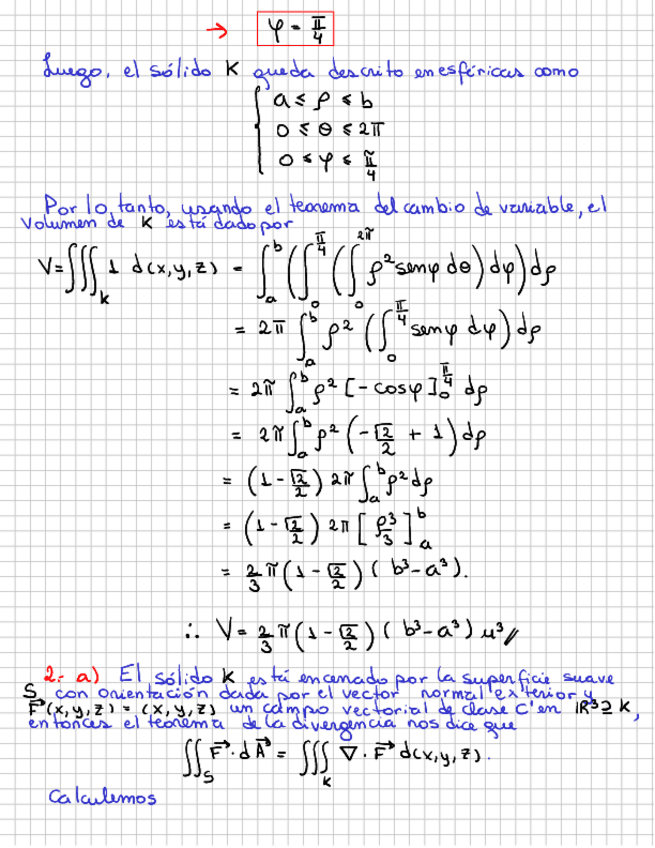 → φ = π/4
Luego, el sólido K queda descrito en esféricas como
a ≤ ρ ≤ b
0 ≤ θ ≤ 2π
0 ≤ φ ≤ π/4
Por lo tanto, usando el teorema del cambio de variable, el
volumen de K está dado por
V = ∭_K 1 d(x,y,z) = ∫_a^b (∫_0^{π/4} (∫_0^{2π} ρ² senφ dθ) dφ) dρ
= 2π ∫_a^b ρ² (∫_0^{π/4} senφ dφ) dρ
= 2π ∫_a^b ρ² [-cosφ]_0^{π/4} dρ
= 2π ∫_a^b ρ² (-√2/2 + 1) dρ
= (1 - √2/2) 2π ∫_a^b ρ² dρ
= (1 - √2/2) 2π [ρ³/3]_a^b
= 2/3 π (1 - √2/2) (b³ - a³).
∴ V = 2/3 π (1 - √2/2) (b³ - a³) u³//
2.- a) El sólido K está encerrado por la superficie suave
S, con orientación dada por el vector normal exterior y
F⃗(x,y,z) = (x,y,z) un campo vectorial de clase C¹ en ℝ³ ⊇ K,
entonces el teorema de la divergencia nos dice que
∬_S F⃗ · dA⃗ = ∭_K ∇ · F⃗ d(x,y,z).
Calculemos